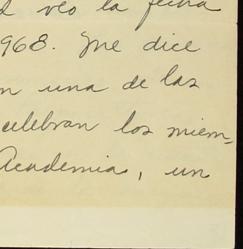 veo la fecha
1968. Me dice
n una de las
celebran los miem-
Academia, un